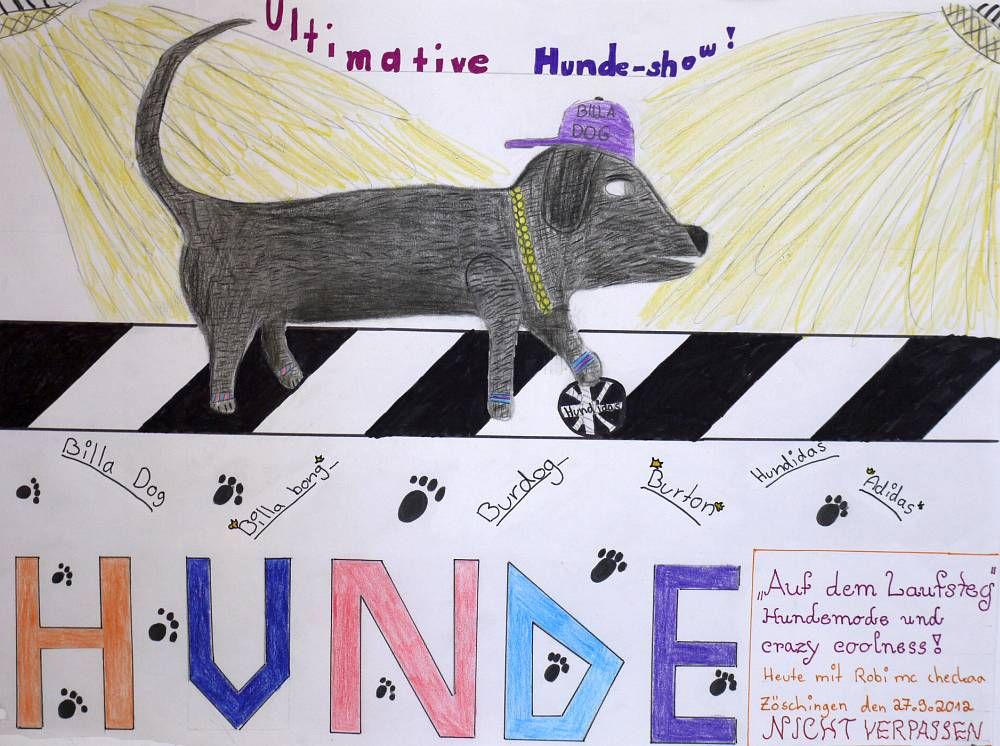 Ultimative Hunde-show!
BILLA
DOG
Hundidas
Billa Dog
Billa bong
Burdog
Burton
Hundidas
Adidas
HUNDE
„Auf dem Laufsteg“
Hundemode und
crazy coolness!
Heute mit Robi mc checkaa
Zöschingen den 27.9.2012
NICHT VERPASSEN